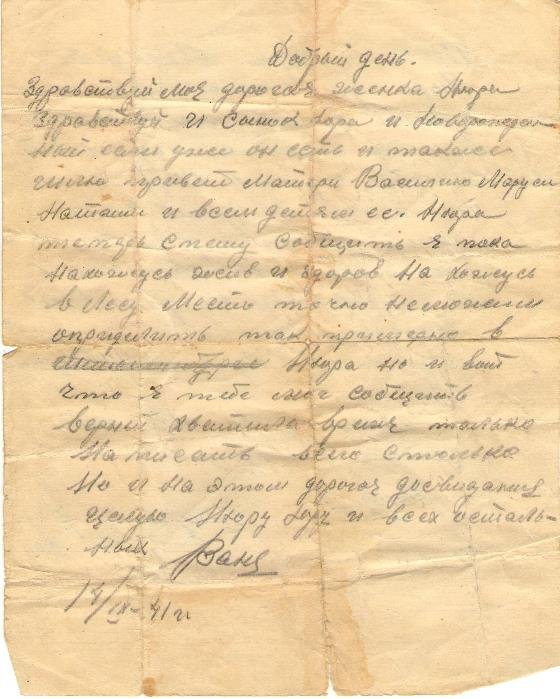 Добрый день.
Здравствуй моя дорогая женка Нюра
Здравствуй и сынок Юра и Новорожден
ный если уже он есть и также
шлю привет Матери Василию Маруси
Наташи и всем детям ее. Нюра
теперь спешу сообщить я пока
нахожусь жив и здоров на хожусь
в лесу Место точно неможем
определить так примерно в
Нюра но и вот
что я тебе мог сообщить
верней хватило время только
написать всего столько
Но и на этом дорогая досвидания
целую Нюру Юру и всех осталь-
ных Ваня
14/IX-41 г